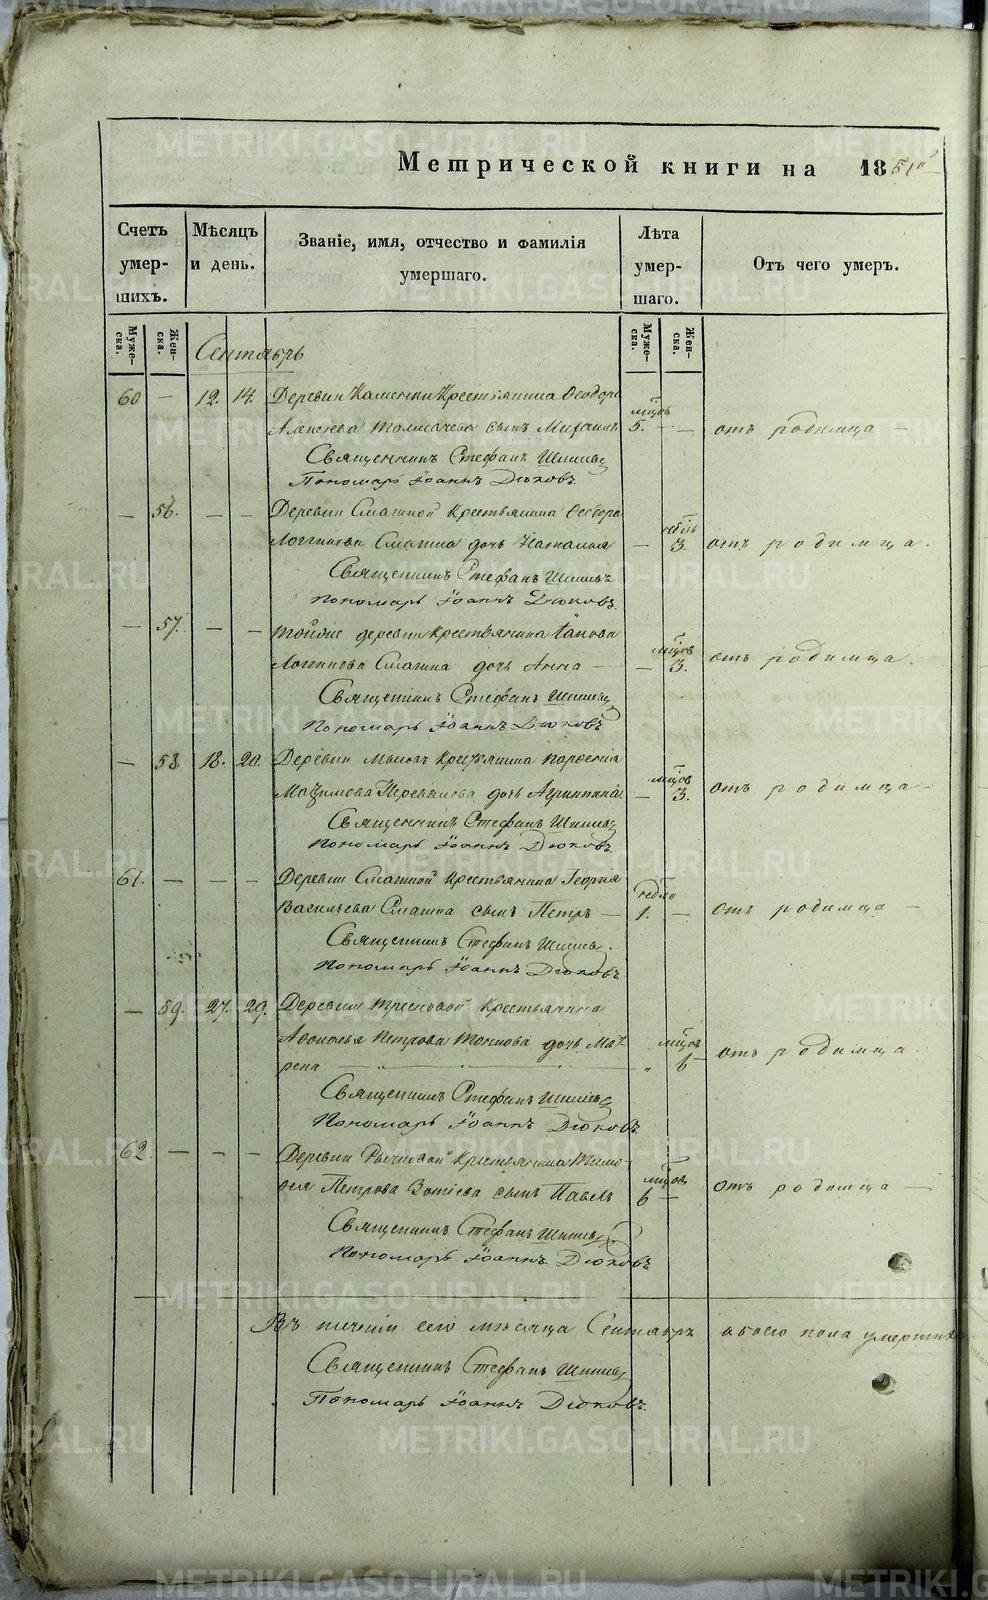 Метрической книги на 1851й
Счетъ умер-шихъ.
Мѣсяцъ и день.
Званіе, имя, отчество и фамилія умершаго.
Лѣта умер-шаго.
Отъ чего умеръ.
Муже-ска. Жен-ска. Муже-ска. Жен-ска.
Сентябрь
60 — 12. 14. Деревни Каменки Крестьянина Ѳеодора
Алексѣева Толмачева сынъ Михаилъ 5. мѣцов — отъ родимца —
Священникъ Стефанъ Шишевъ
Пономарь Іоаннъ Дюковъ.
— 56. — — Деревни Смагиной Крестьянина Ѳеодора
Логгинова Смагина дочь Наталья — 3. недѣль отъ родимца.
Священникъ Стефанъ Шишевъ
Пономарь Іоаннъ Дюковъ.
— 57. — — Тойже деревни Крестьянина Іакова
Логгинова Смагина дочь Анна — — 3. мѣцов отъ родимца.
Священникъ Стефанъ Шишевъ
Пономарь Іоаннъ Дюковъ
— 58 18. 20. Деревни Крестьянина Парѳенія
Максимова дочь Агриппина — 3. мѣцов отъ родимца —
Священникъ Стефанъ Шишевъ
Пономарь Іоаннъ Дюковъ
61. — — — Деревни Смагиной Крестьянина Георгія
Васильева Смагина сынъ Петръ — 1. недѣли — отъ родимца —
Священникъ Стефанъ Шишевъ.
Пономарь Іоаннъ Дюковъ
— 59. 27. 29. Деревни Крестьянина
Аѳонасья Петрова дочь Мат-
рена " 6 мѣцов отъ родимца
Священникъ Стефанъ Шишевъ
Пономарь Іоаннъ Дюковъ
62. — — — Деревни Крестьянина Тимо-
ѳея Петрова сынъ Павелъ 6 мѣцов — отъ родимца —
Священникъ Стефанъ Шишевъ
Пономарь Іоаннъ Дюковъ
Въ теченіи сего мѣсяца Сентября обоего пола умерших
Священникъ Стефанъ Шишевъ
Пономарь Іоаннъ Дюковъ.
METRIKI.GASO-URAL.RU